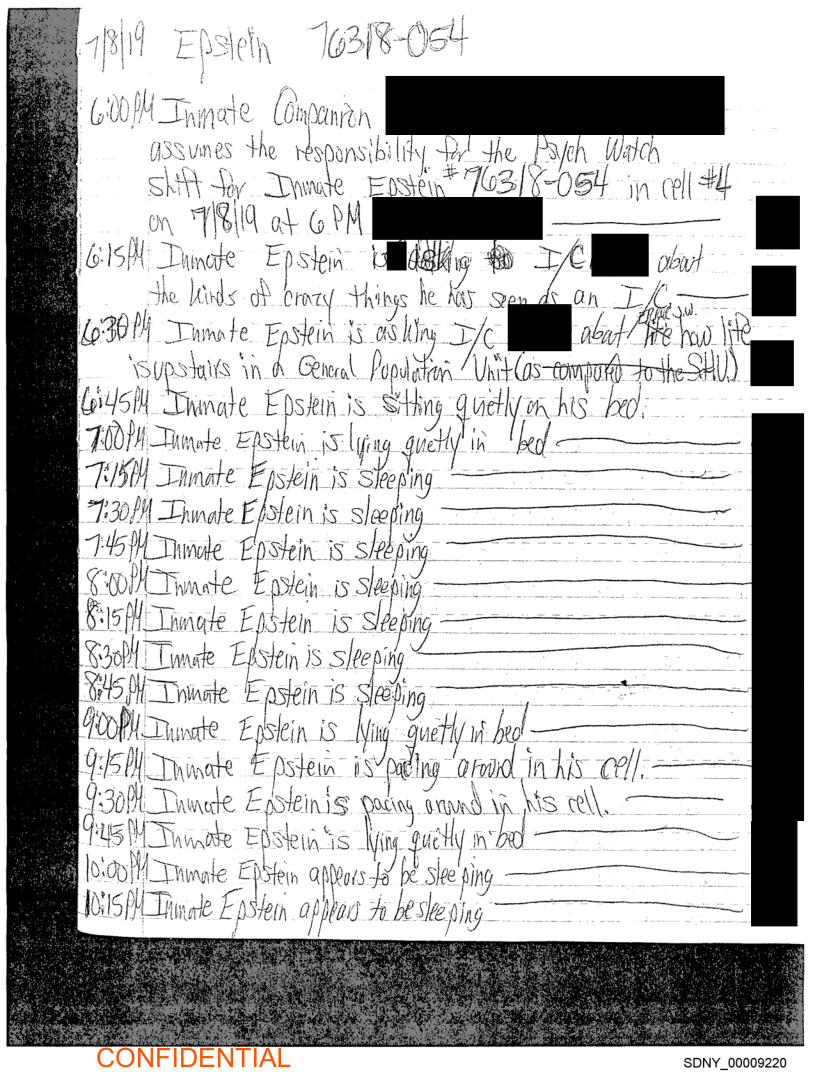 7/8/19 Epstein 76318-054
6:00PM Inmate Companion
assumes the responsibility for the Psych Watch
shift for Inmate Epstein #76318-054 in cell #4
on 7/8/19 at 6 PM
6:15PM Inmate Epstein is asking I/C about
the kinds of crazy things he has seen as an I/C
6:30PM Inmate Epstein is asking I/C about how life
is upstairs in a General Population Unit (as compared to the SHU)
6:45PM Inmate Epstein is sitting quetly on his bed.
7:00PM Inmate Epstein is lying quetly in bed
7:15PM Inmate Epstein is sleeping
7:30PM Inmate Epstein is sleeping
7:45PM Inmate Epstein is sleeping
8:00PM Inmate Epstein is sleeping
8:15PM Inmate Epstein is sleeping
8:30PM Inmate Epstein is sleeping
8:45PM Inmate Epstein is sleeping
9:00PM Inmate Epstein is lying quetly in bed
9:15PM Inmate Epstein is pacing around in his cell.
9:30PM Inmate Epstein is pacing around in his cell.
9:45PM Inmate Epstein is lying quetly in bed
10:00PM Inmate Epstein appears to be sleeping
10:15PM Inmate Epstein appears to be sleeping
CONFIDENTIAL
SDNY_00009220